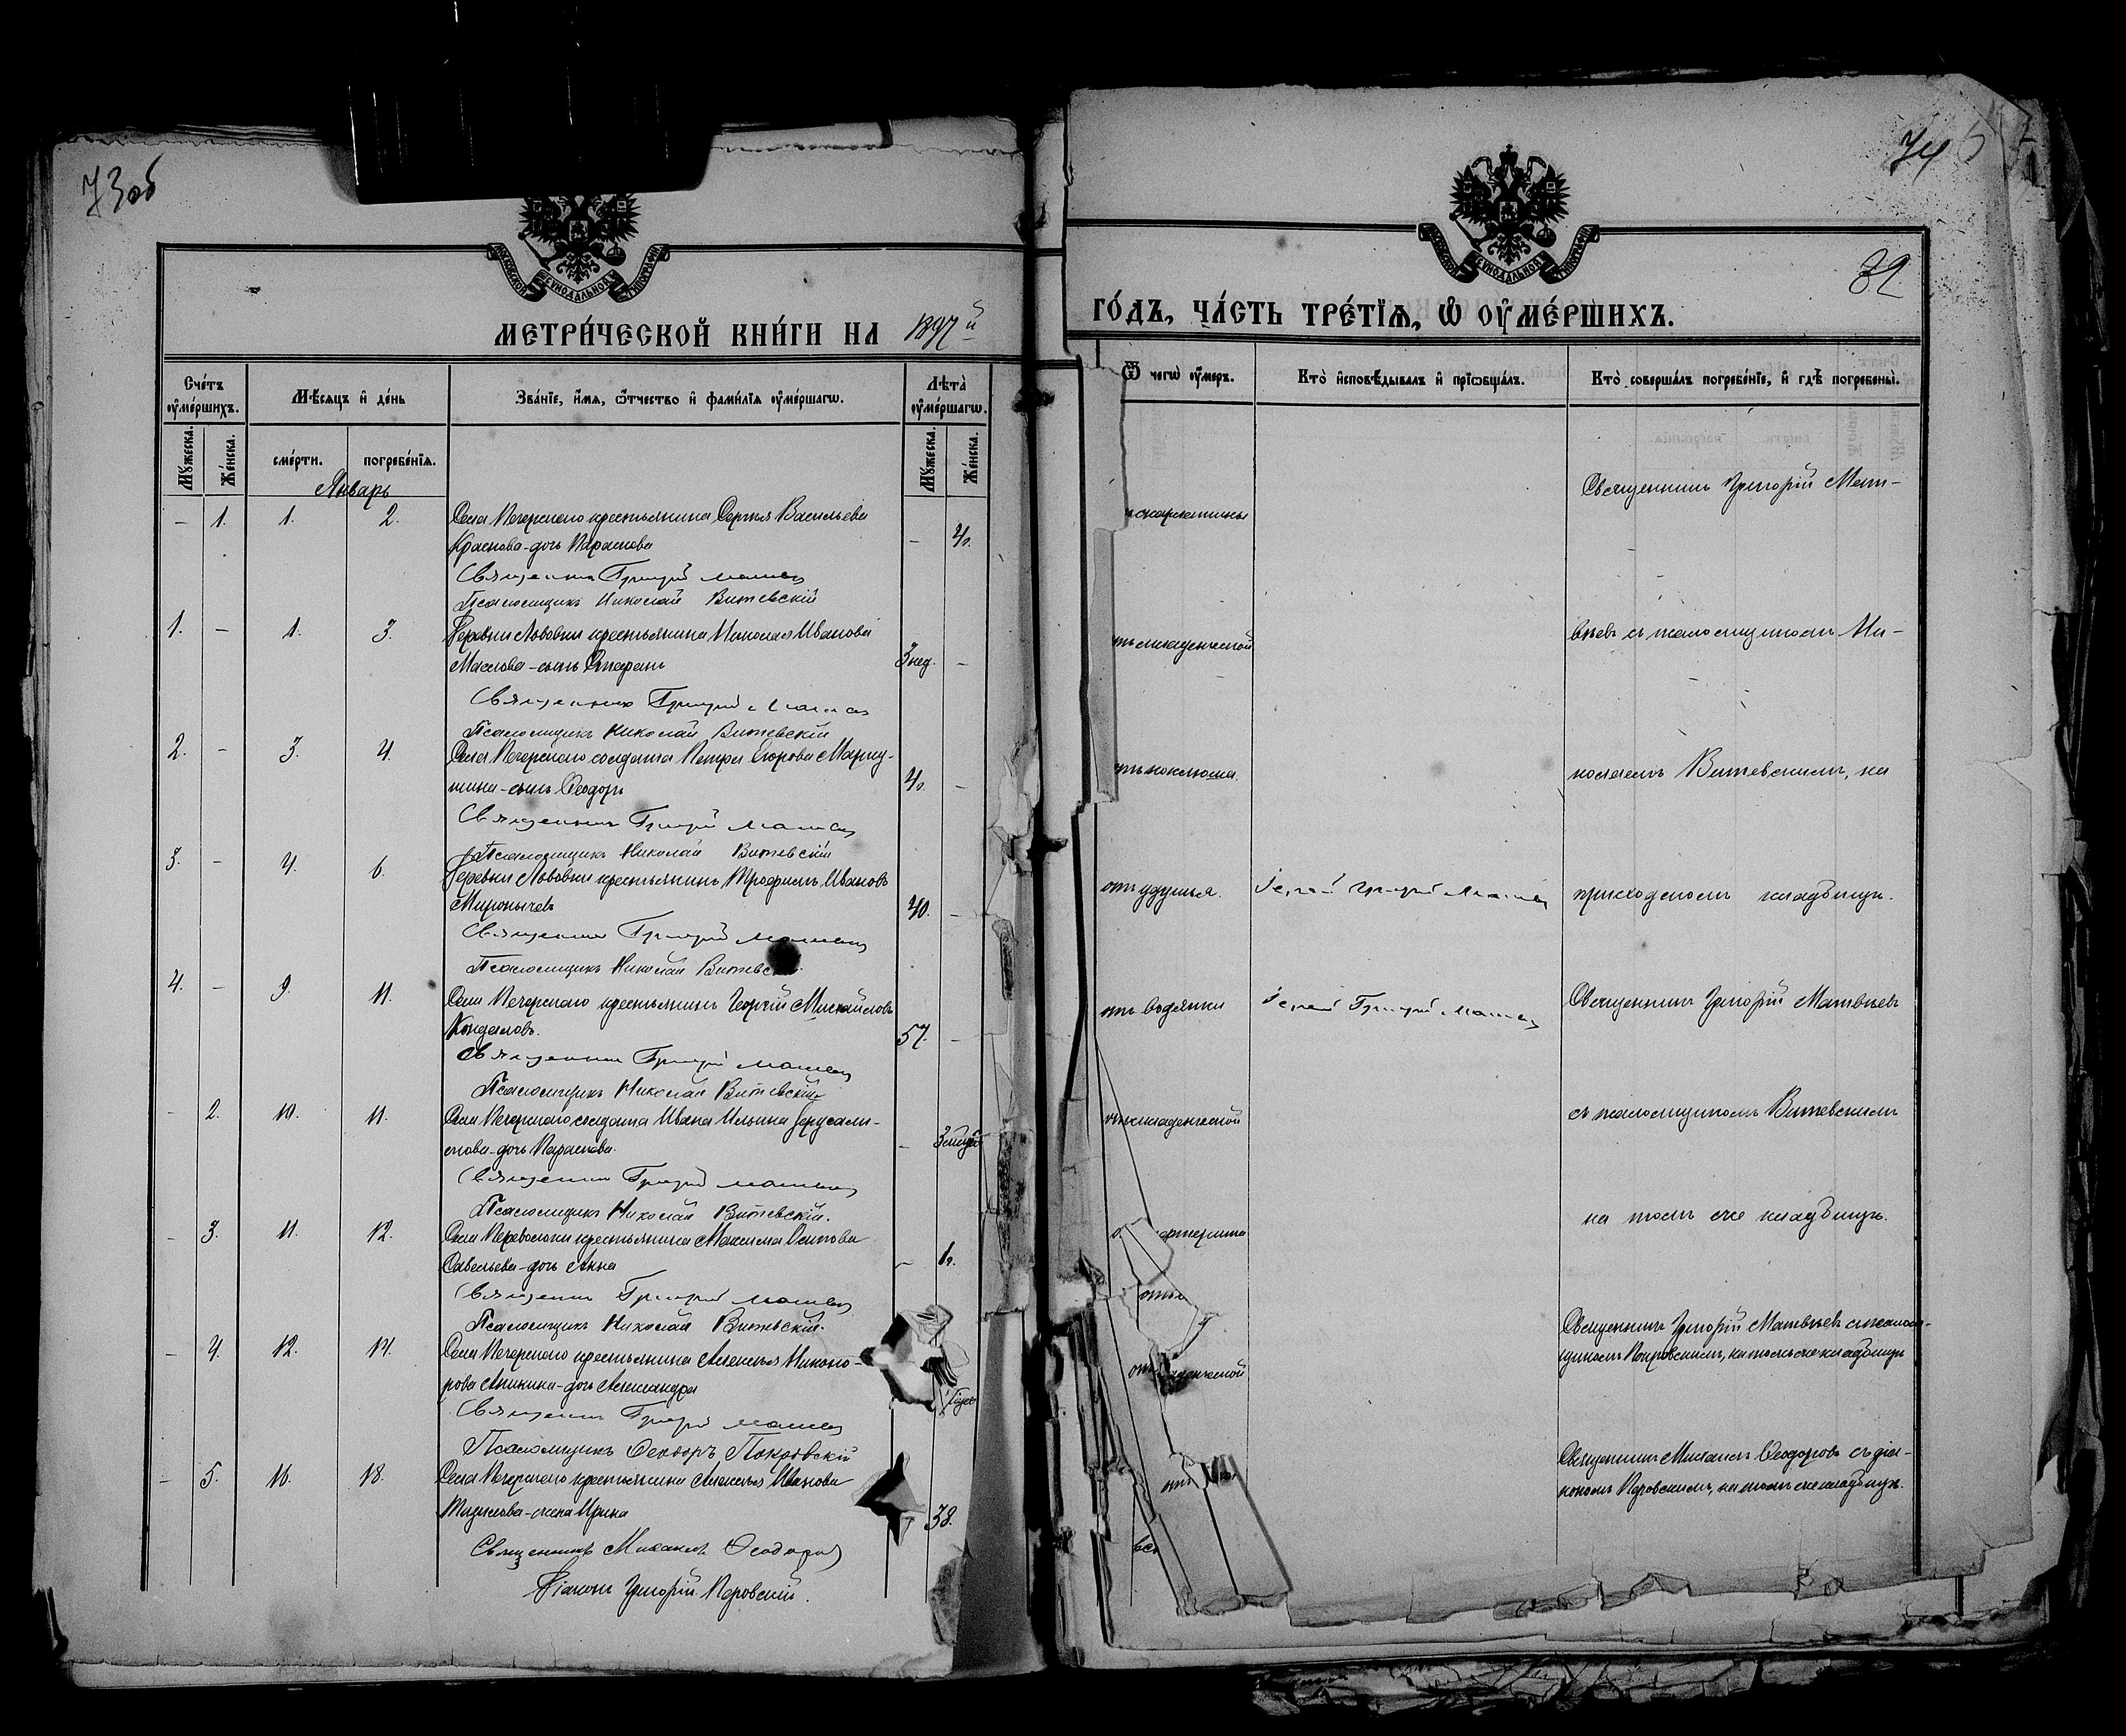 73об
74
82.
МОСКОВСКОЙ СѴНОДАЛЬНОЙ ТИПОГРАФІИ
МОСКОВСКОЙ СѴНОДАЛЬНОЙ ТИПОГРАФІИ
МЕТРИ́ЧЕСКОЙ КНИ́ГИ НА 1897й
ГО́ДЪ, ЧА́СТЬ ТРЕ́ТЇѦ, Ѡ ОУ҆МЕ́РШИХЪ.
Сче́тъ оу҆ме́ршихъ.
Мꙋжеска.
Же́нска.
Мѣ́сѧцъ и҆ де́нь
сме́рти.
погребе́нїѧ.
Зва́нїе, и҆́мѧ, ѻ҆́тчество и҆ фами́лїѧ оу҆ме́ршагѡ.
Лѣта̀ оу҆ме́ршагѡ.
Мꙋжеска.
Же́нска.
Ѿ чегѡ̀ оу҆́меръ.
Кто̀ и҆сповѣ́дывалъ и҆ прїѡбща́лъ.
Кто̀ соверша́лъ погребе́нїе, и҆ гдѣ̀ погребены̀.
Январь
- 1. 1. 2. Села Печерскаго крестьянина Сергѣя Васильева
Краснова - дочь Параскева - 4г.
скарлатины
Священникъ Григорій Мат-
Священникъ Григорій Матвѣевъ
Псаломщикъ Николай Витевскій
1. - 1. 3. Деревни Львовки крестьянина Николая Иванова
Маслова - сынъ Стефанъ 3 нед. -
младенческой
вѣевъ съ псаломщикомъ Ни-
Священникъ Григорій Матвѣевъ
Псаломщикъ Николай Витевскій
2. - 3. 4. Села Печерскаго солдата Петра Егорова Марку-
шина - сынъ Ѳеодоръ 4г. -
коклюша.
колаемъ Витевскимъ, на
Священникъ Григорій Матвѣевъ
Псаломщикъ Николай Витевскій
3. - 4. 6. Деревни Львовки крестьянинъ Трофимъ Ивановъ
Миронычевъ 40. -
отъ удушья. Іерей Григорій Матвѣевъ
приходскомъ кладбищѣ.
Священникъ Григорій Матвѣевъ
Псаломщикъ Николай Витевскій.
4. - 9. 11. Села Печерскаго крестьянинъ Георгій Михайловъ
Кондаловъ. 57. -
отъ водянки Іерей Григорій Матвѣевъ
Священникъ Григорій Матвѣевъ
Священникъ Григорій Матвѣевъ
Псаломщикъ Николай Витевскій
- 2. 10. 11. Села Печерскаго солдата Ивана Ильина Іерусали-
мова - дочь Параскева. -
младенческой
съ псаломщикомъ Витевскимъ
Священникъ Григорій Матвѣевъ
Псаломщикъ Николай Витевскій.
на томъ же кладбищѣ.
- 3. 11. 12. Села Переволоки крестьянина Максима Осипова
Савельева - дочь Анна - 1г.
Священникъ Григорій Матвѣевъ
Псаломщикъ Николай Витевскій.
- 4. 12. 14. Села Печерскаго крестьянина Алексѣя Никоно-
рова Аникина - дочь Александра
Священникъ Григорій Матвѣевъ съ псалом-
щикомъ Покровскимъ, на томъ же кладбищѣ
Священникъ Григорій Матвѣевъ
Псаломщикъ Ѳеодоръ Покровскій
- 5. 16. 18. Села Печерскаго крестьянина Алексѣя Иванова
жена Ирина 38.
отъ
Священникъ Михаилъ Ѳеодоровъ съ діа-
кономъ Перовскимъ, на томъ же кладбищѣ.
Священникъ Михаилъ Ѳеодоровъ
Діаконъ Григорій Перовскій.